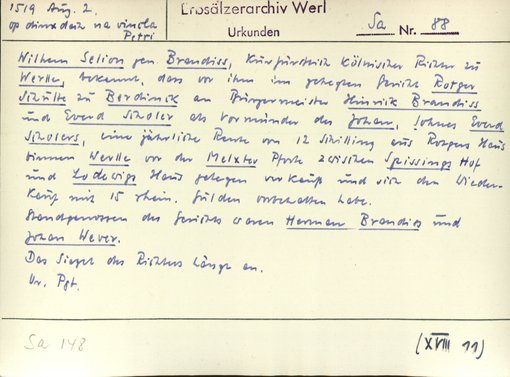 1519 Aug. 2.
op dinxdach na vincla
Petri
Erbsälzerarchiv Werl
Urkunden
Sa Nr. 88
Wilhem Selion gen Brandiss, Kurfürstlich Kölnischer Richter zu
Werlle, bekennt, dass vor ihm im gehegten Gericht Rotger
Schulte zu Berdinck an Bürgermeister Hinrik Brandiss
und Everd Scholer als Vormünder des Johan, Sohnes Everd
Scholers, eine jährliche Rente von 12 Schilling aus Rotgers Haus
binnen Werlle vor der Melxter Pforte zwischen Spissings Hof
und Lodewigs Haus gelegen verkauft und sich den Wieder-
kauf mit 15 rhein. Gulden vorbehalten habe.
Standgenossen des Gerichts waren Herman Brandiss und
Johan Wever.
Das Siegel des Richters hängt an.
Or. Pgt.
Sa 148
(XVIII 11)